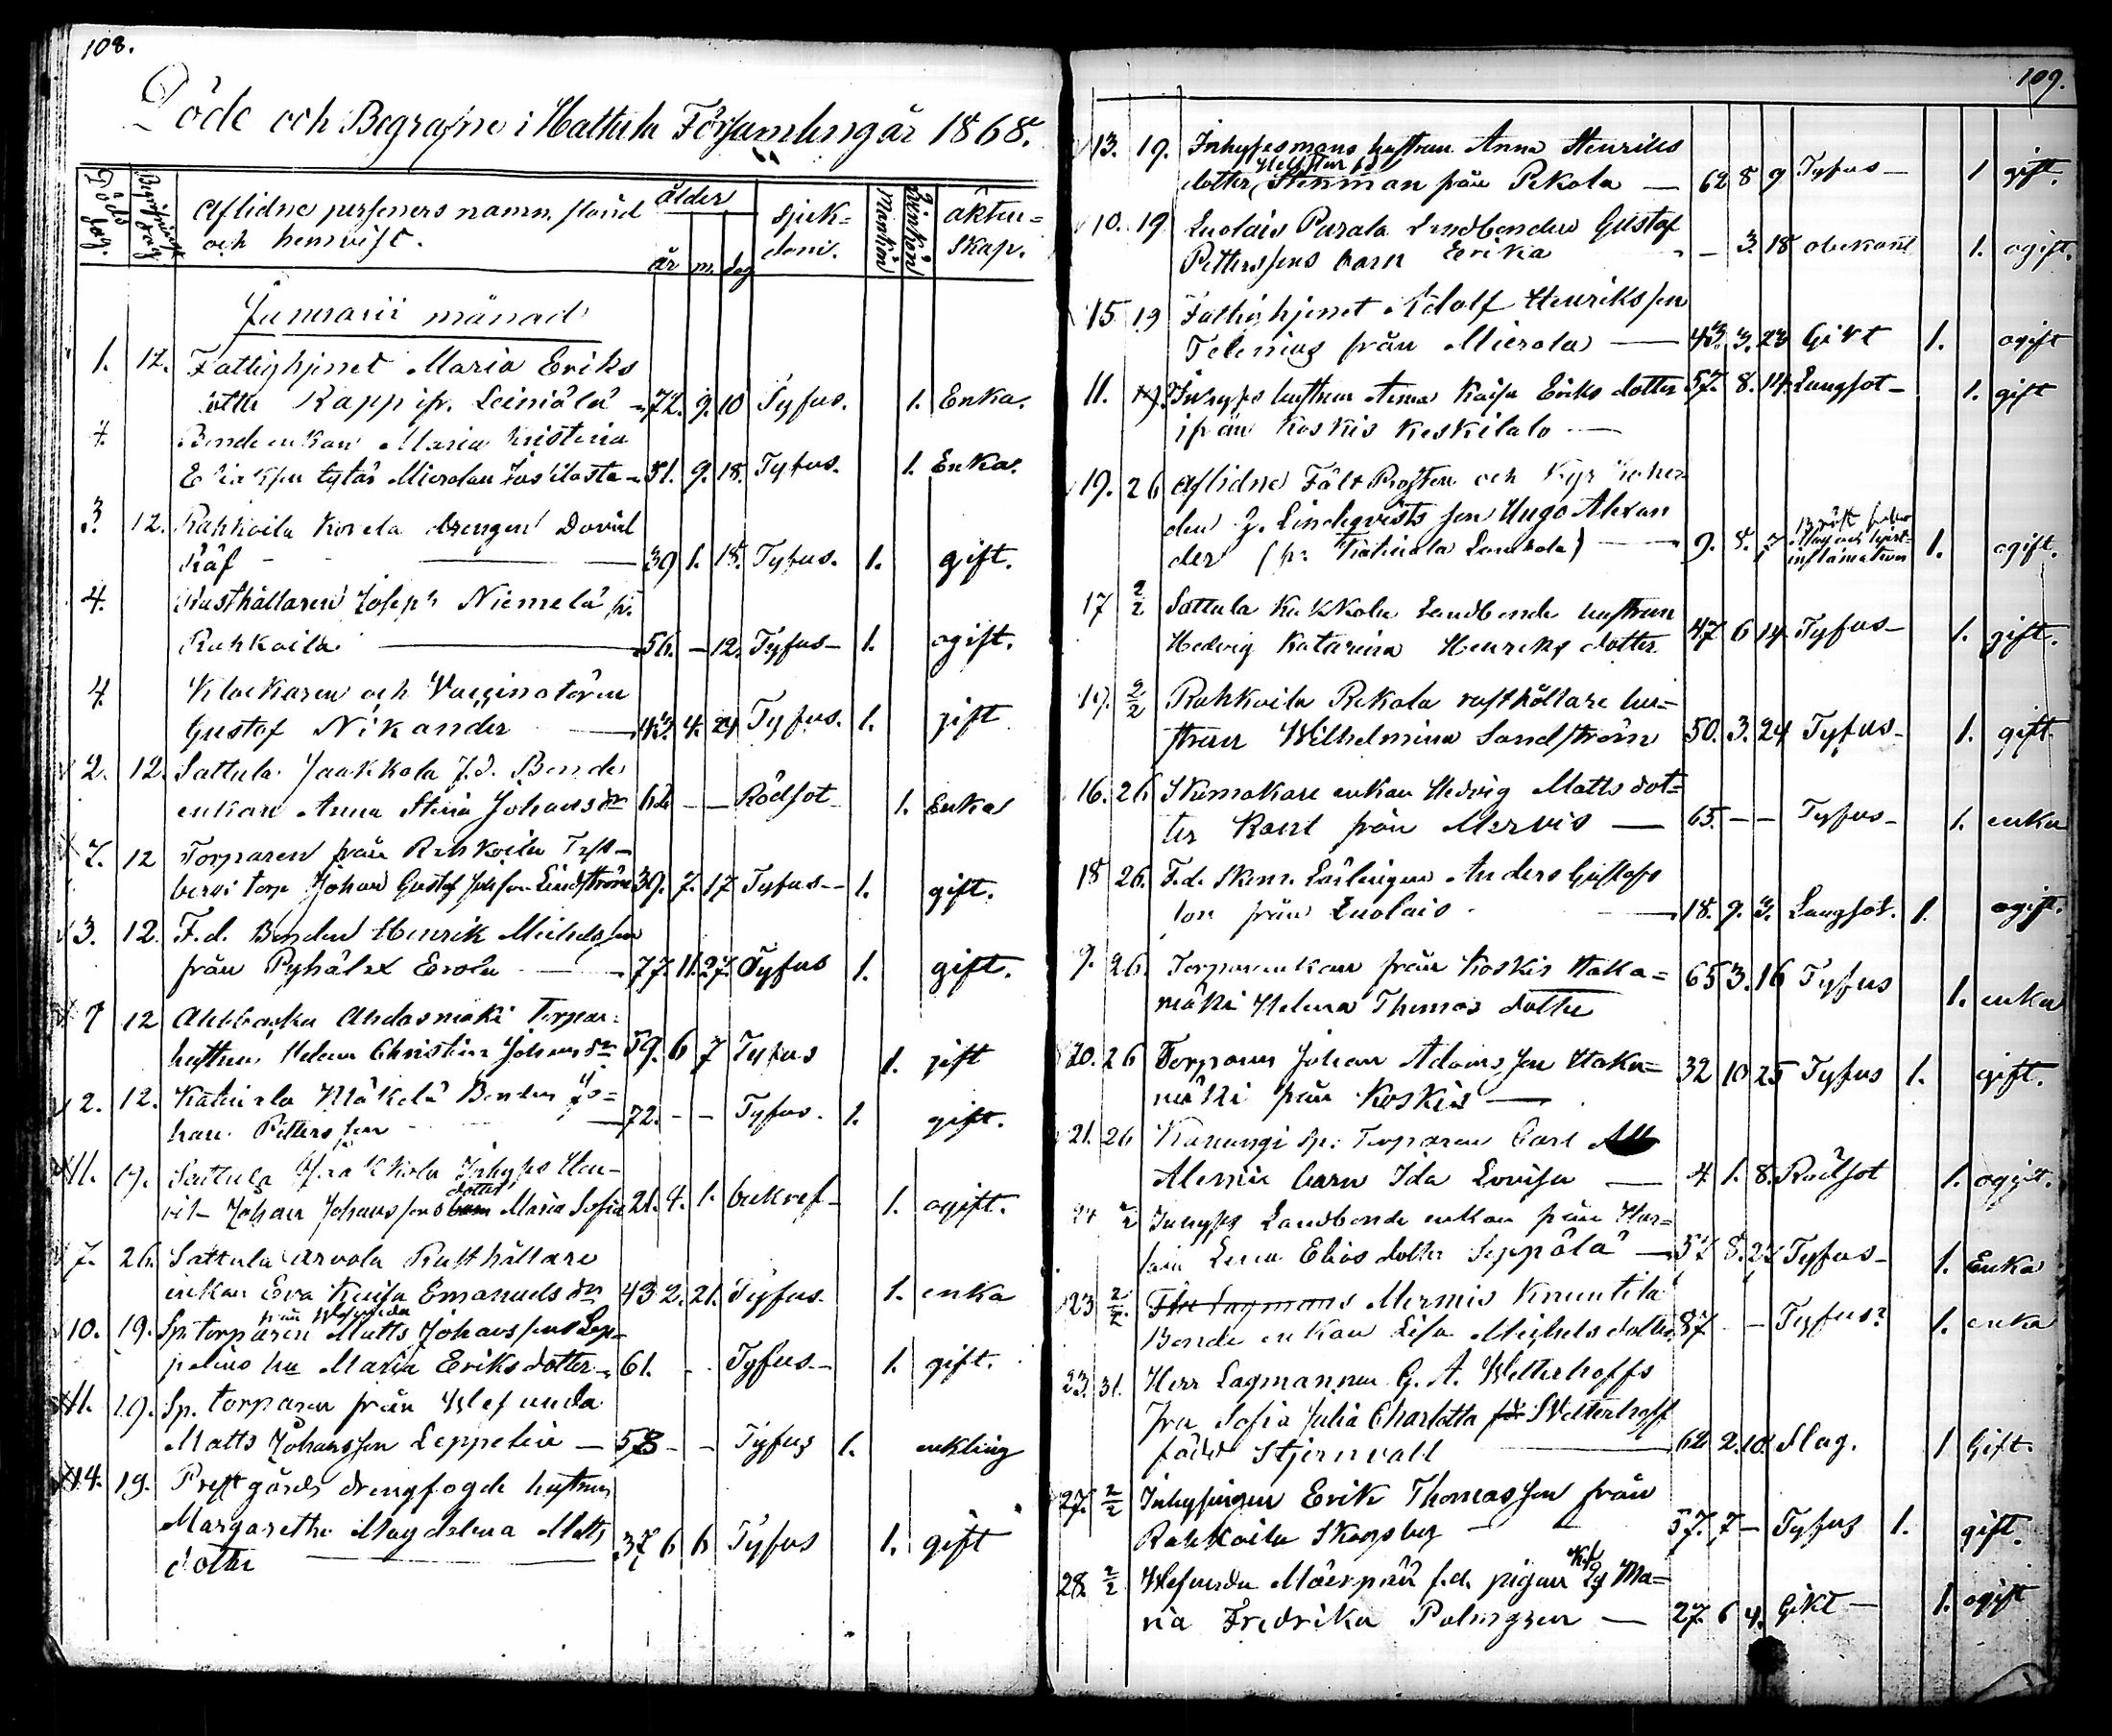 108.
Döde och Begrafne i Hattula Församling år 1868.
Döds dag. Begrafnings dag Aflidne personers namn, stånd och hemvist. ålder år m. dag Sjuk=dom. Mankön Qvinkön äkten=skap.
Januarii månad
1. 12. Fattighjonet Maria Eriks
dotter Rapp ifr. Leiniälä 72. 9. 10 Tyfus. 1. Enka.
4. Bonde enkan Maria Kristina
tytär Mierolan 51. 9. 18. Tyfus. 1. Enka.
3. 12. Rahkoila Korela drengen David
Räf 39 1. 18. Tyfus. 1. gift.
4. Rusthållaren Joseph Niemelä fr.
Rahkoila 56. - 12. Tyfus 1. ogift.
4. Klockaren och Vaccinatören
Gustaf Nikander 43. 4. 24 Tyfus. 1. gift
2. 12. Sattula Jaakkola f.d. Bonde
enkan Anna Stina Johans dr 62 - - Rödsot 1. Enka
7. 12 Torparen från Rahkoila
torp Johan Gustaf Lindström 39. 7. 17 Tyfus 1. gift.
3. 12. F.d. Bonden Henrik Michelsson
från Pyhälx Erola 77. 11. 27. Tyfus 1. gift.
7 12 Ahlbacka Ahdasmäki torpar=
hustrun Helena Christina Johans dr 59. 6 7 Tyfus 1. gift
2. 12. Katinala Mäkelä Bonden Jo=
han Pettersson 72. - - Tyfus. 1. gift.
11. 19. Sattula Jaakkola Inhyses
Johan Johanssons dotter Maria Sofia 21. 4. 1. 1. ogift.
7. 26. Sattula Arvola Rusthållare
enkan Eva Kaisa Emanuels dr 43 2. 21. Tyfus. 1. enka
10. 19. Sp. torparen från Wesunda Matts Johanssons Lep=
pelins hu Maria Eriksdotter 61. - - Tyfus 1. gift.
11. 19. Sp. torparen från Wesunda
Matts Johansson Leppelin 58 - - Tyfus 1. enkling
14. 19. Prestgårds drengfogde hustrun
Margaretha Magdalena Matts
dotter 37 6 6 Tyfus 1. gift
109.
13. 19. Inhysesmans hustrun Anna Henriks
dotter Stenman från Pekola 62 8 9 Tyfus 1 gift.
10. 19 Luolais Parala Landbonden Gustaf
Petterssons barn Erika - 3. 18 obekant 1. ogift.
15 19 Fattighjonet Adolf Henriksson
Telenius från Mierola 43. 3. 23 Gikt 1. ogift
11. 19. Inhyses hustrun Anna Kaisa Eriks dotter 57. 8. 14. Lungsot 1. gift
ifrån Koskis Keskitalo
19. 26 Aflidne Fält Prosten och Kyrkoher
den J. Lindeqvists son Hugo Alexan
der (fr. Katinala) 9. 8. 7 Bröst feber inflamation 1. ogift.
17 2/2 Sattula Kakkola Landbonde hustrun
Hedvig Katarina Henriks dotter 47 6 14 Tyfus 1. gift.
19. 2/2 Rahkoila Pekola rusthållare hu=
strun Wilhelmina Sandström 50. 3. 24 Tyfus 1. gift.
16. 26. Skomakare enkan Hedvig Matts dot=
ter från Mervis 65. - - Tyfus 1. enka
18 26. F.d. Skom. Lärlingen Anders Gustafs
son från Luolais 18. 9. 3. Lungsot. 1. ogift.
9. 26. Torpareenkan från Koskis Haka=
mäki Helena Thomas dotter 65 3. 16 Tyfus 1. enka
20. 26 Torparen Johan Adamsson Haka=
mäki från Koskis 32 10 25 Tyfus 1. gift.
21. 26 Kanungi Sp. Torparen Carl
barn Ida Lovisa 4 1. 8. Rödsot 1. ogift.
24 2/2 Inhyses Landbonde enkan från
Lena Elias dotter Seppälä 57 8. 27 Tyfus 1. Enka
23 2/2 Mermis Knuutila
Bonde enkan Lisa Michels dotter 87 - - Tyfus? 1. enka
23. 31. Herr Lagmannen G. A. Wetterhoffs
fru Sofia Julia Charlotta Wetterhoff
född Stjernvall 62 2. 10. Slag. 1 Gift
27. 2/2 Inhysingen Erik Thomasson från
Rahkoila Skogsby 57. 7 - Tyfus 1. gift.
28. 2/2 Wesunda Mäenpää f.d. pigan Ma=
ria Fredrika Palmgren 27. 6 4. Gikt 1. ogift